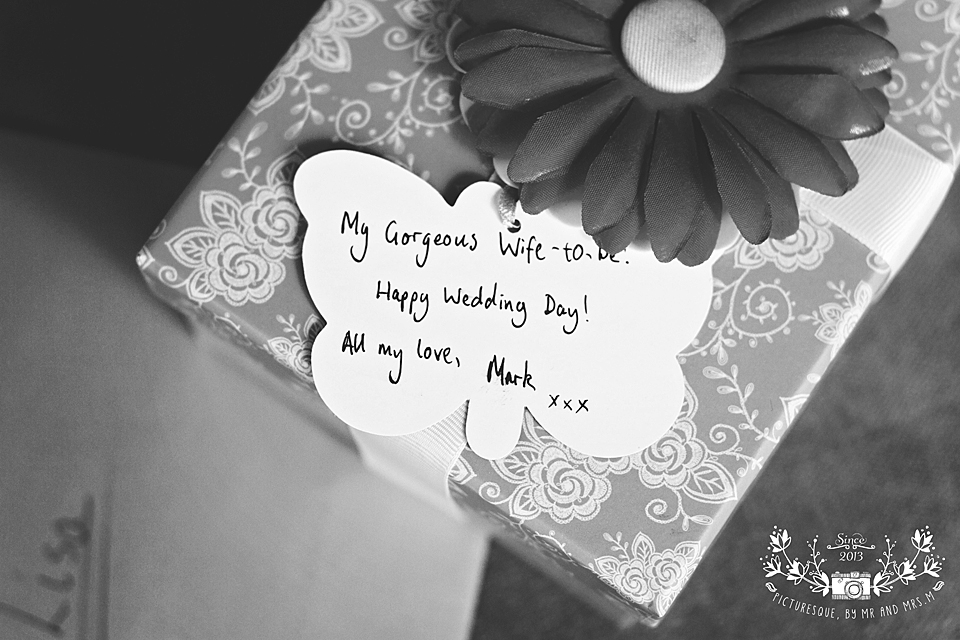 My Gorgeous Wife-to-be.
Happy Wedding Day!
All my love, Mark
xxx
Lisa
Since
2013
PICTURESQUE, BY MR AND MRS.M